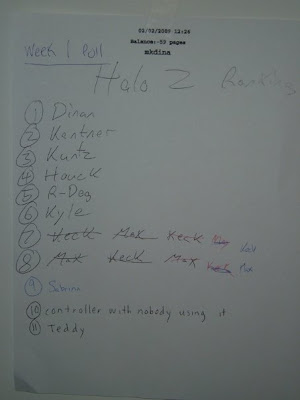 02/02/2009 12:26
Balance:-53 pages
mkdina
Week 1 Poll
Halo 2 Rankings
1 Dinan
2 Kantner
3 Kuntz
4 Houck
5 R-Dog
6 Kyle
7 Keck Max Keck
8 Max Keck Max Keck Max
9 Sabrina
10 controller with nobody using it
11 Teddy